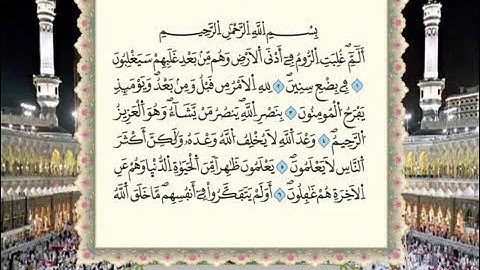 بِسْمِ اللَّهِ الرَّحْمَٰنِ الرَّحِيمِ
الٓمٓ غُلِبَتِ الرُّومُ فِي أَدْنَى الْأَرْضِ وَهُم مِّنْ بَعْدِ غَلَبِهِمْ سَيَغْلِبُونَ
فِي بِضْعِ سِنِينَ لِلَّهِ الْأَمْرُ مِن قَبْلُ وَمِنْ بَعْدُ وَيَوْمَئِذٍ
يَفْرَحُ الْمُؤْمِنُونَ بِنَصْرِ اللَّهِ يَنصُرُ مَن يَشَاءُ وَهُوَ الْعَزِيزُ
الرَّحِيمُ وَعْدَ اللَّهِ لَا يُخْلِفُ اللَّهُ وَعْدَهُ وَلَٰكِنَّ أَكْثَرَ
النَّاسِ لَا يَعْلَمُونَ يَعْلَمُونَ ظَاهِرًا مِّنَ الْحَيَوٰةِ الدُّنْيَا وَهُمْ عَنِ
الْآخِرَةِ هُمْ غَافِلُونَ أَوَلَمْ يَتَفَكَّرُوا فِي أَنفُسِهِم مَّا خَلَقَ اللَّهُ